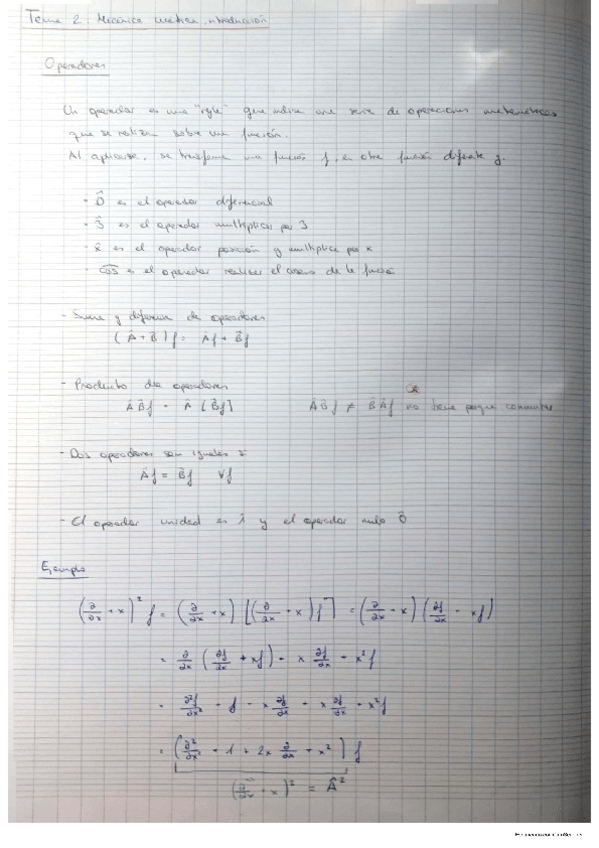 Tema 2. Mecánica cuántica. introducción
Operadores
Un operador es una "regla" que indica una serie de operaciones matemáticas
que se realizan sobre una función.
Al aplicarse, se transforma una función f, en otra función diferente g.
- D̂ es el operador diferencial
- 3̂ es el operador multiplicar por 3
- x̂ es el operador posición y multiplica por x
- cos es el operador realizar el coseno de la función
- Suma y diferencia de operadores
(Â + B̂) f = Âf + B̂f
- Producto de operadores
ÂB̂f = Â (B̂f)    ÂB̂f ≠ B̂Âf no tiene porque conmutar
- Dos operadores son iguales si
Âf = B̂f ∀f
- El operador unidad es 1̂ y el operador nulo 0̂
Ejemplo
(∂/∂x + x)² f = (∂/∂x + x) [(∂/∂x + x) f] = (∂/∂x + x) (∂f/∂x + xf)
= ∂/∂x (∂f/∂x + xf) + x ∂f/∂x + x²f
= ∂²f/∂x² + f + x ∂f/∂x + x ∂f/∂x + x²f
= (∂²/∂x² + 1 + 2x ∂/∂x + x²) f
(∂/∂x + x)² = Â²